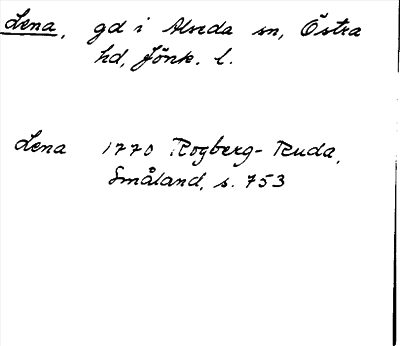 Lena, gd i Alseda sn, Östra
hd, Jönk. l.
Lena 1770 Rogberg-Ruda,
Småland, s. 753